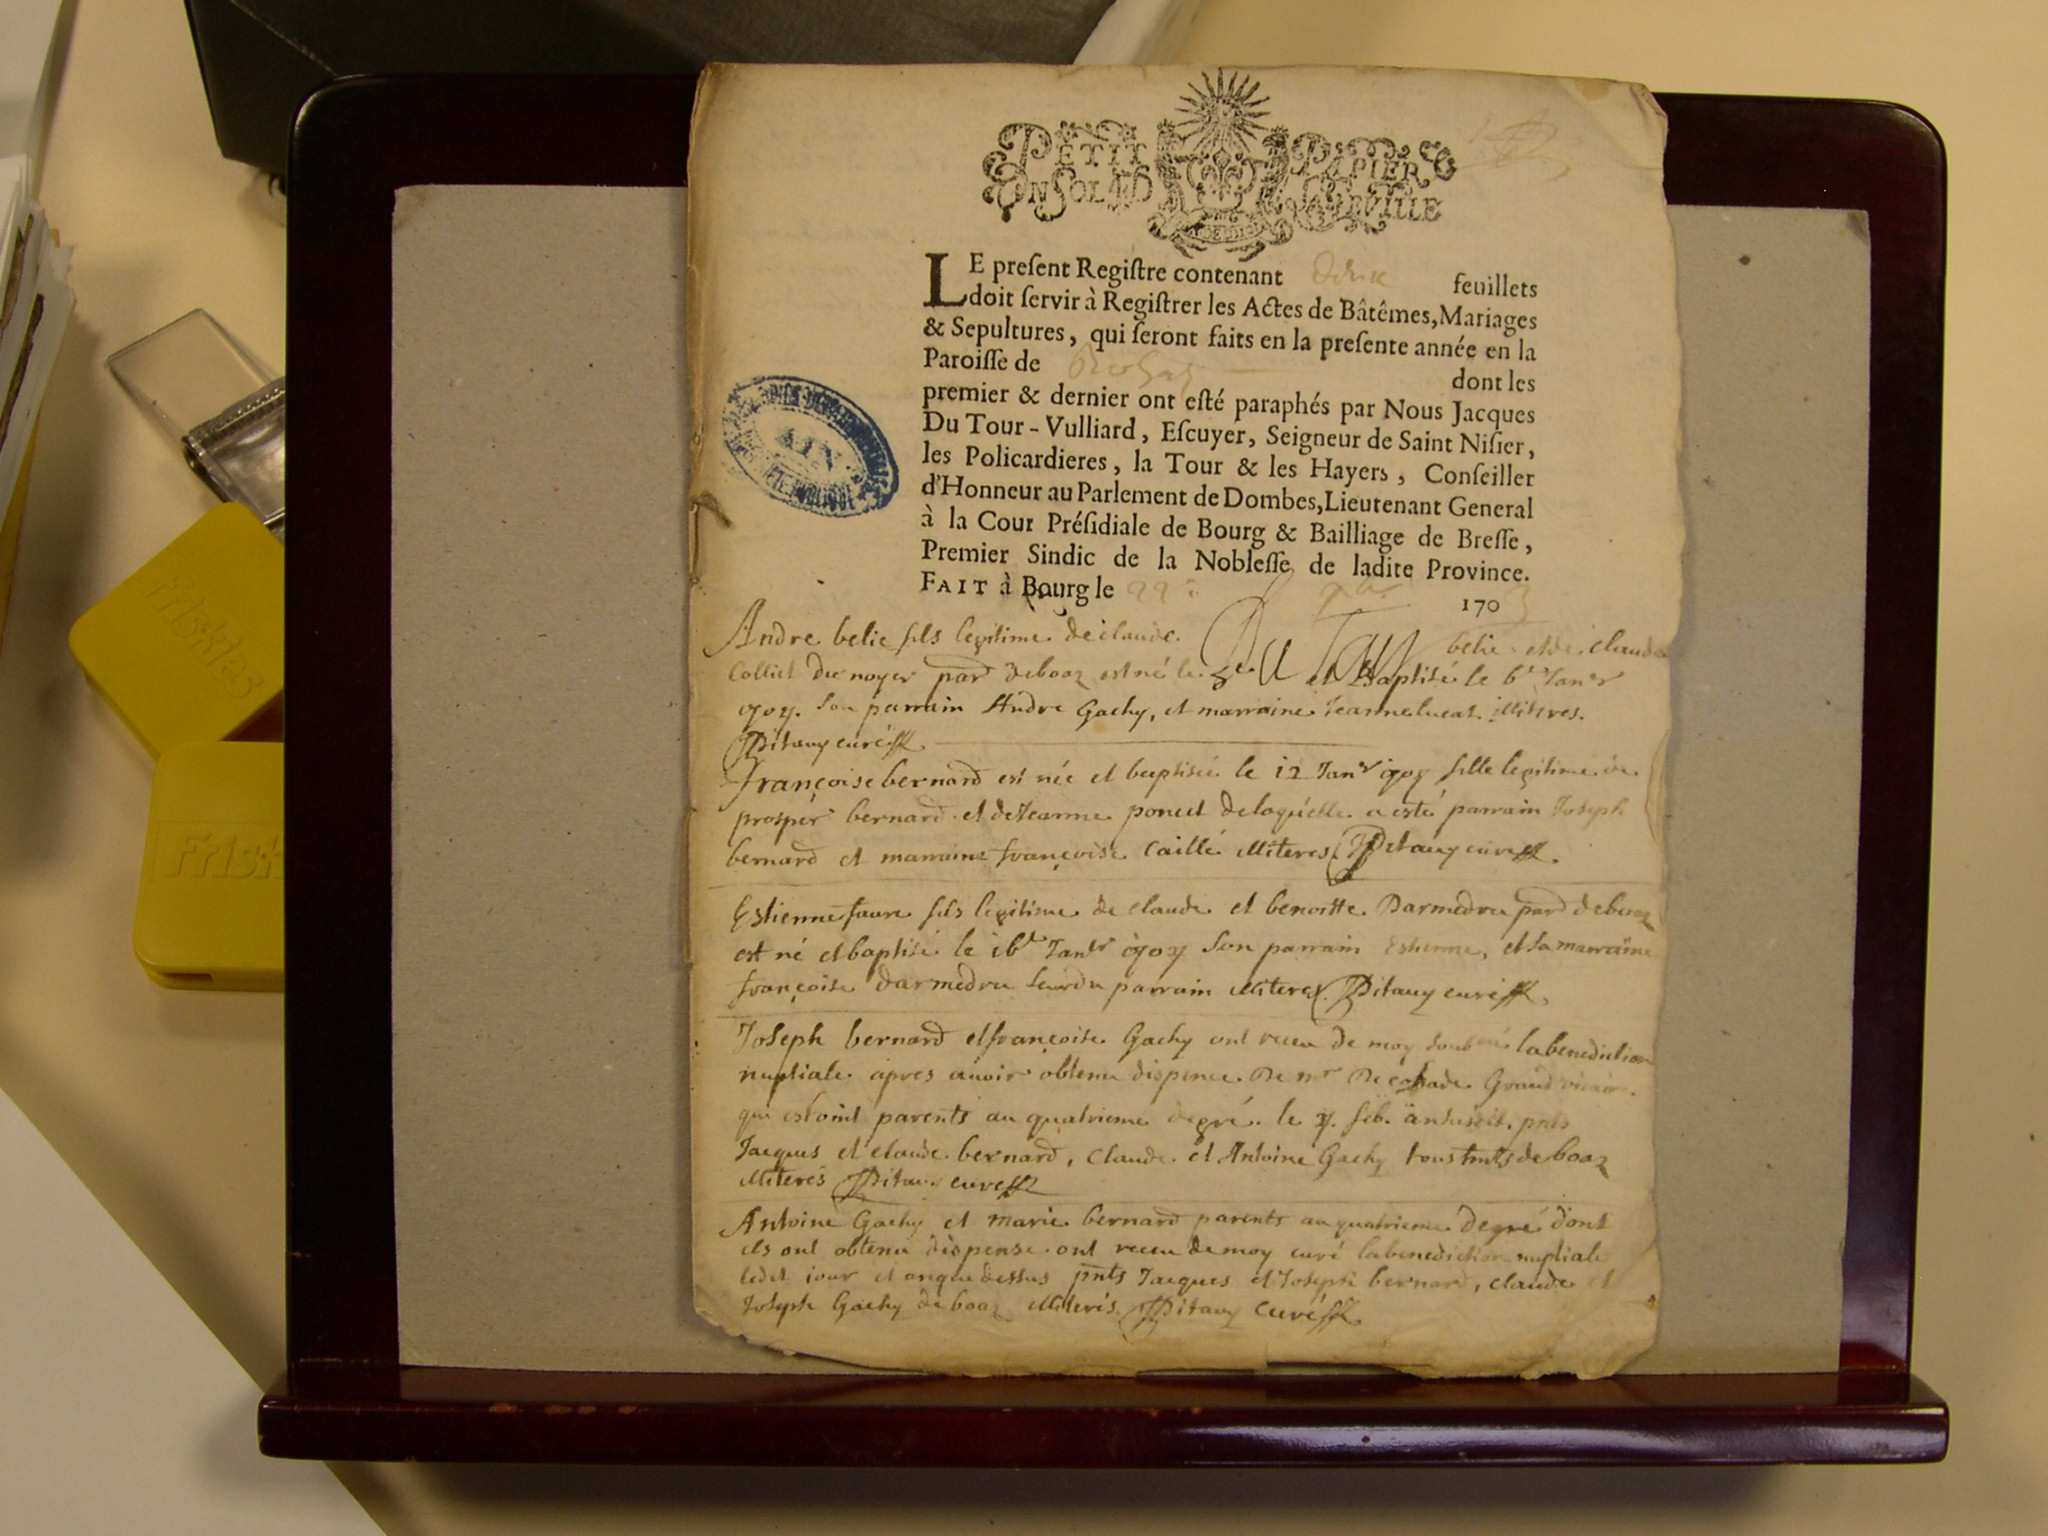 PETIT PAPIER
UN SOL 4 D LA FEUILLE
LE preſent Regiſtre contenant feuillets
doit ſervir à Regiſtrer les Actes de Bâtêmes, Mariages
& Sepultures, qui ſeront faits en la preſente année en la
Paroiſſe de dont les
premier & dernier ont eſté paraphés par Nous Jacques
Du Tour-Vulliard, Eſcuyer, Seigneur de Saint Niſier,
les Policardieres, la Tour & les Hayers, Conſeiller
d'Honneur au Parlement de Dombes, Lieutenant General
à la Cour Préſidiale de Bourg & Bailliage de Breſſe,
Premier Sindic de la Nobleſſe de ladite Province.
FAIT à Bourg le 22 170
AIN
Andre belie fils legitime de claude Du Tour belie et de claude
Colliet du noyer par de boaz est né le et Baptisé le 6e Janvr
son parrain Andre Gachy, et marraine Jeanne lucat illiteres.
Bitauy curé
françoise bernard est née et baptisée le 12 Janvr fille legitime de
prosper bernard et de Jeanne poncet de laquelle a esté parrain Joseph
bernard et marraine françoise Caillé illiteres Bitauy curé
Estienne faure fils legitime de claude et benoitte Darmedru par de boaz
est né et baptisé le 16e Janvr son parrain Estienne, et sa marraine
françoise darmedru parrain illiteres Bitauy curé
Joseph bernard et françoise Gachy ont receu de moy la benediction
nuptiale apres avoir obtenu dispence De mr Grand vicaire
qui estoint parents au quatrieme degré le feb.
Jacques et claude bernard, Claude et Antoine Gachy tous de boaz
illiteres Bitauy curé
Antoine Gachy et marie bernard parents au quatrieme degré dont
ils ont obtenu dispense ont receu de moy curé la benediction nuptiale
ledit jour et an que dessus pnts Jacques et Joseph bernard, claude et
Joseph Gachy de boaz illiterés Bitauy Curé
Friskies
Frisk